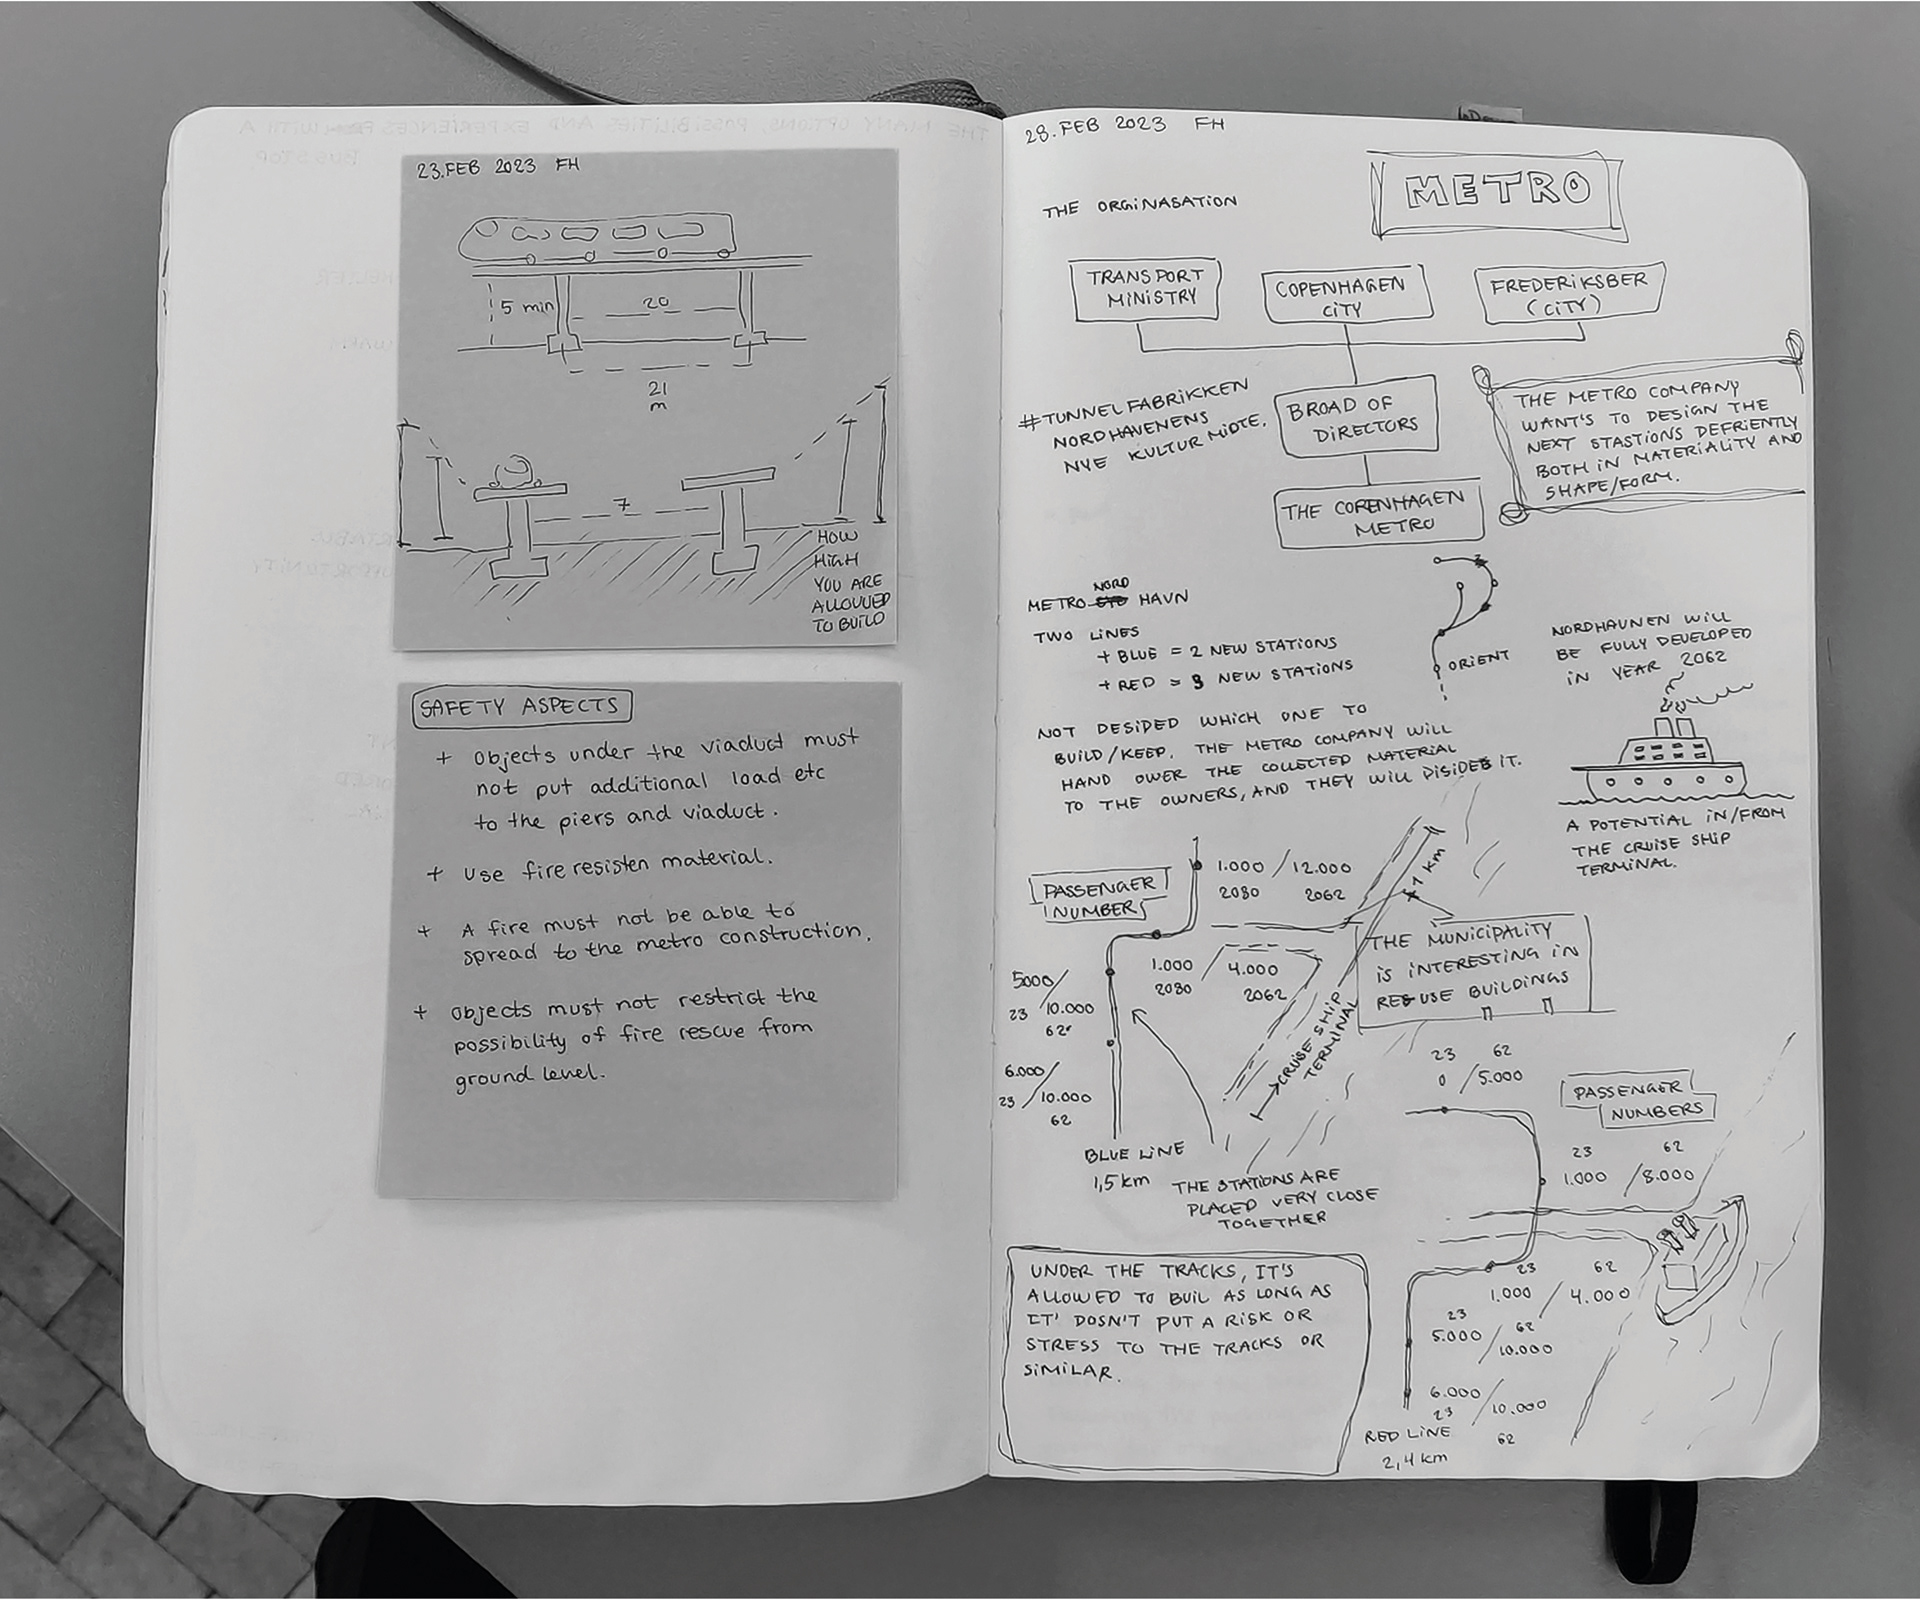 23.FEB 2023 FH
5 min
20
21
m
7
HOW
HIGH
YOU ARE
ALLOWED
TO BUILD
SAFETY ASPECTS
+ Objects under the viaduct must
not put additional load etc
to the piers and viaduct.
+ Use fire resisten material.
+ A fire must not be able to
spread to the metro construction.
+ Objects must not restrict the
possibility of fire rescue from
ground level.
28.FEB 2023 FH
METRO
THE ORGINASATION
TRANSPORT
MINISTRY
COPENHAGEN
CITY
FREDERIKSBER
(CITY)
#TUNNELFABRIKKEN
NORDHAVENENS
NYE KULTUR MIDTE.
BROAD OF
DIRECTORS
THE COPENHAGEN
METRO
THE METRO COMPANY
WANT'S TO DESIGN THE
NEXT STASTIONS DEFRIENTLY
BOTH IN MATERIALITY AND
SHAPE/FORM.
NORD
METRO HAVN
TWO LINES
+ BLUE = 2 NEW STATIONS
+ RED = 3 NEW STATIONS
ORIENT
NORDHAVNEN WILL
BE FULLY DEVELOPED
IN YEAR 2062
NOT DESIDED WHICH ONE TO
BUILD/KEEP. THE METRO COMPANY WILL
HAND OWER THE COLLECTED MATERIAL
TO THE OWNERS, AND THEY WILL DISIDES IT.
A POTENTIAL IN/FROM
THE CRUISE SHIP
TERMINAL.
PASSENGER
NUMBERS
1.000 / 12.000
2080 2062
1.000 / 4.000
2080 2062
5000/
23 / 10.000
62
6.000/
23 / 10.000
62
BLUE LINE
1,5 km
THE STATIONS ARE
PLACED VERY CLOSE
TOGETHER
1 km
CRUISE SHIP
TERMINAL
THE MUNICIPALITY
IS INTERESTING IN
REUSE BUILDINGS
23 62
0 / 5.000
PASSENGER
NUMBERS
23 62
1.000 / 8.000
23 62
1.000 / 4.000
23
5.000 / 62
10.000
6.000 / 10.000
23 62
RED LINE
2,4 km
UNDER THE TRACKS, IT'S
ALLOWED TO BUIL AS LONG AS
IT' DOSN'T PUT A RISK OR
STRESS TO THE TRACKS OR
SIMILAR.